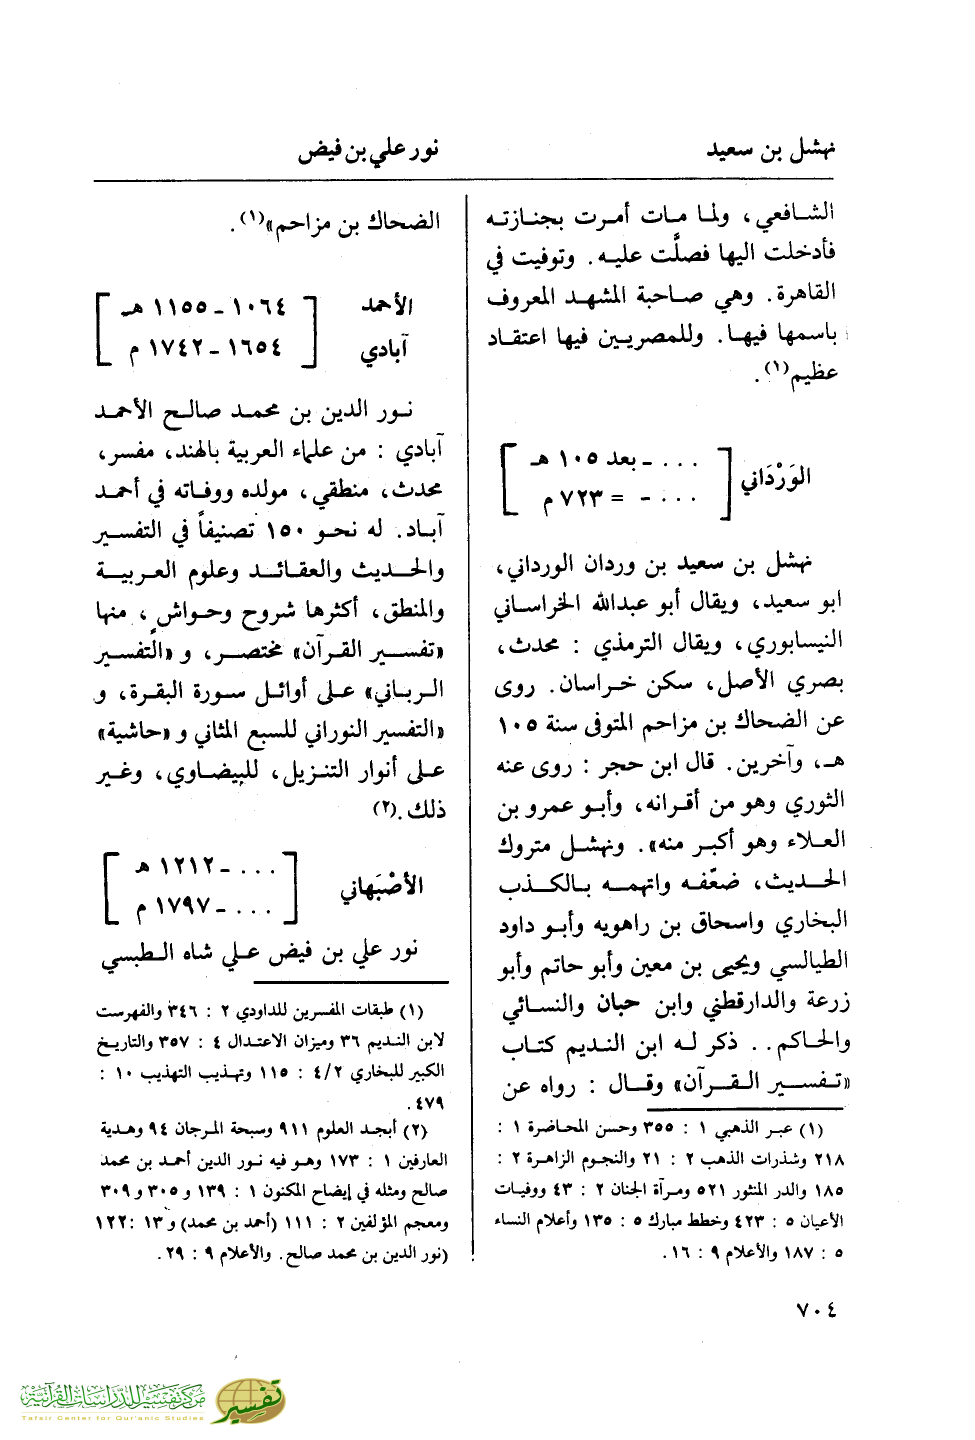 نهشل بن سعيد
نور علي بن فيض
الشافعي، ولما مات أمرت بجنازته
فأدخلت اليها فصلَّت عليه. وتوفيت في
القاهرة. وهي صاحبة المشهد المعروف
باسمها فيها. وللمصريين فيها اعتقاد
عظيم(١).
الوَرْدَاني [ ... ـ بعد ١٠٥ هـ
... ـ = ٧٢٣ م ]
نهشل بن سعيد بن وردان الورداني،
ابو سعيد، ويقال أبو عبدالله الخراساني
النيسابوري، ويقال الترمذي : محدث،
بصري الأصل، سكن خراسان. روى
عن الضحاك بن مزاحم المتوفى سنة ١٠٥
هـ، وآخرين. قال ابن حجر : روى عنه
الثوري وهو من أقرانه، وأبو عمرو بن
العلاء وهو أكبر منه». ونهشل متروك
الحديث، ضعّفه واتهمه بالكذب
البخاري واسحاق بن راهويه وأبو داود
الطيالسي ويحيى بن معين وأبو حاتم وأبو
زرعة والدارقطني وابن حبان والنسائي
والحاكم.. ذكر له ابن النديم كتاب
«تفسير القرآن» وقال : رواه عن
(١) عبر الذهبي ١ : ٣٥٥ وحسن المحاضرة ١ :
٢١٨ وشذرات الذهب ٢ : ٢١ والنجوم الزاهرة ٢ :
١٨٥ والدر المنثور ٥٢١ ومرآة الجنان ٢ : ٤٣ ووفيات
الأعيان ٥ : ٤٢٣ وخطط مبارك ٥ : ١٣٥ وأعلام النساء
٥ : ١٨٧ والأعلام ٩ : ١٦.
الضحاك بن مزاحم»(١).
الأحمد [ ١٠٦٤ ـ ١١٥٥ هـ
آبادي ١٦٥٤ ـ ١٧٤٢ م ]
نور الدين بن محمد صالح الأحمد
آبادي : من علماء العربية بالهند، مفسر،
محدث، منطقي، مولده ووفاته في أحمد
آباد. له نحو ١٥٠ تصنيفاً في التفسير
والحديث والعقائد وعلوم العربية
والمنطق، أكثرها شروح وحواشٍ، منها
«تفسير القرآن» مختصر، و «التفسير
الرباني» على أوائل سورة البقرة، و
«التفسير النوراني للسبع المثاني و «حاشية»
على أنوار التنزيل، للبيضاوي، وغير
ذلك.(٢)
الأصْبَهاني [ ... ـ ١٢١٢ هـ
... ـ ١٧٩٧ م ]
نور علي بن فيض علي شاه الطبسي
(١) طبقات المفسرين للداودي ٢ : ٣٤٦ والفهرست
لابن النديم ٣٦ وميزان الاعتدال ٤ : ٣٥٧ والتاريخ
الكبير للبخاري ٤/٢ : ١١٥ وتهذيب التهذيب ١٠ :
٤٧٩.
(٢) أبجد العلوم ٩١١ وسبحة المرجان ٩٤ وهدية
العارفين ١ : ١٧٣ وهو فيه نور الدين أحمد بن محمد
صالح ومثله في إيضاح المكنون ١ : ١٣٩ و٣٠٥ و ٣٠٩
ومعجم المؤلفين ٢ : ١١١ (أحمد بن محمد) و١٣ :١٢٢
(نور الدين بن محمد صالح. والأعلام ٩ : ٢٩.
٧٠٤
مركز تفسير للدراسات القرآنية
Tafsir Center for Qur'anic Studies
تفسير